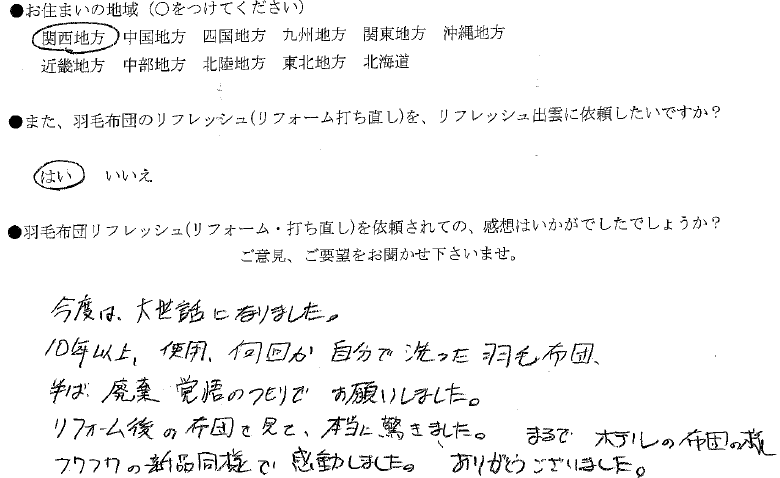 ●お住まいの地域（○をつけてください）
関西地方 中国地方 四国地方 九州地方 関東地方 沖縄地方
近畿地方 中部地方 北陸地方 東北地方 北海道
●また、羽毛布団のリフレッシュ(リフォーム打ち直し)を、リフレッシュ出雲に依頼したいですか？
はい いいえ
●羽毛布団リフレッシュ(リフォーム・打ち直し)を依頼されての、感想はいかがでしたでしょうか？
ご意見、ご要望をお聞かせ下さいませ。
今度は、大世話になりました。
10年以上、使用、何回か自分で洗った羽毛布団、
半ば廃棄覚悟のつもりでお願いしました。
リフォーム後の布団を見て、本当に驚きました。まるでホテルの布団の様
フワフワの新品同様で感動しました。ありがとうございました。